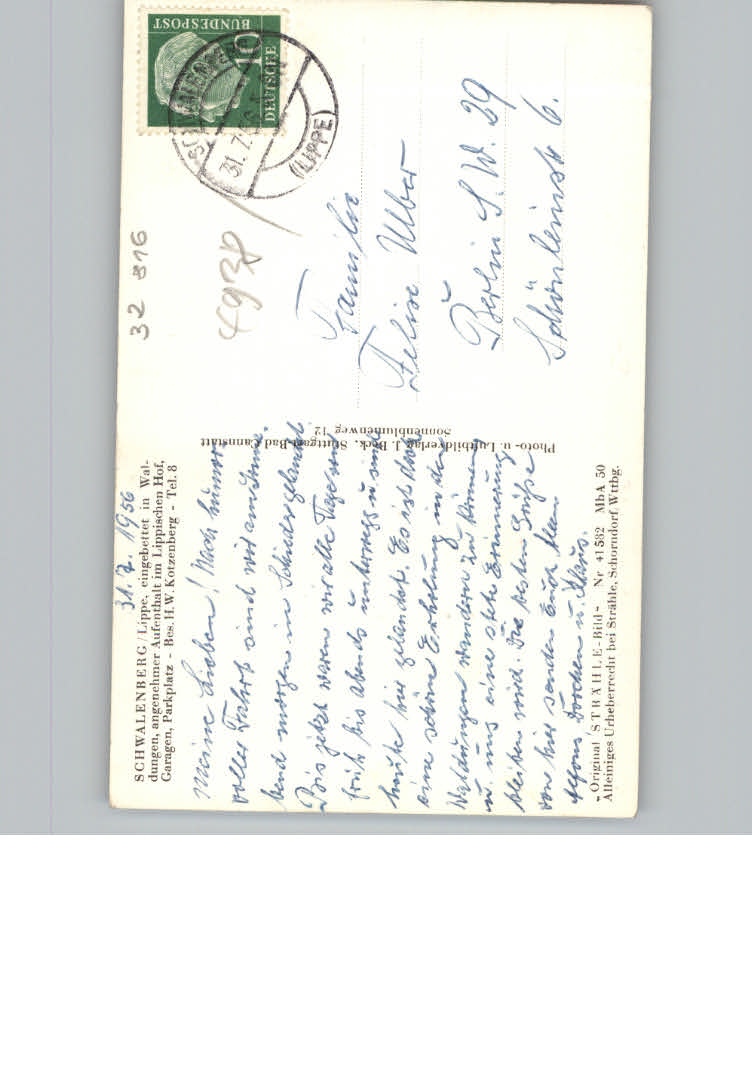 31.7.1956
SCHWALENBERG/Lippe, eingebettet in Wal-
dungen, angenehmer Aufenthalt im Lippischen Hof,
Garagen, Parkplatz - Bes. H. W. Kotzenberg - Tel. 8
Meine Lieben! Nach humor-
voller Fahrt sind wir am Sonn-
abend morgen in Schieder gelandet.
Bis jetzt waren wir alle Tage von
früh bis abends unterwegs u. sind
heute hier gelandet. Es ist doch
eine schöne Erholung in den
Waldungen wandern zu können
u. uns eine stete Erinnerung
bleiben wird. Die besten Grüße
von hier senden Euch allen
Alfons Dorchen u. Klaus.
"Original STRÄHLE-Bild" Nr 41 582 MbA 50
Alleiniges Urheberrecht bei Strähle, Schorndorf Wttbg.
Photo- u. Luftbildverlag J. Beck, Stuttgart-Bad Cannstatt
Sonnenblumenweg 12
32 816
4938
DEUTSCHE
BUNDESPOST
10
SCHWALENBERG
31.7.56
(LIPPE)
Familie
Felix Ulber
Berlin S.W. 29
Schönleinstr 6.